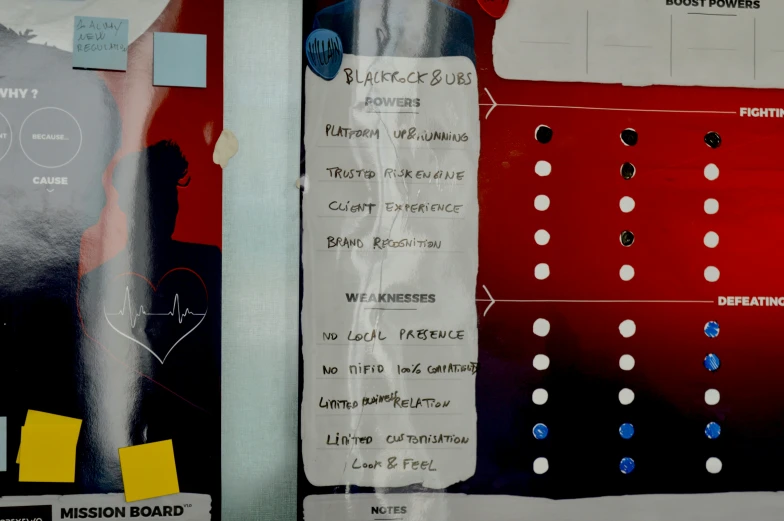 BOOST POWERS
NEW
WHY ?
BECAUSE...
CAUSE
VILLAIN
BLACKROCK & UBS
POWERS
FIGHTING
PLATFORM UP & RUNNING
TRUSTED RISK ENGINE
CLIENT EXPERIENCE
BRAND RECOGNITION
WEAKNESSES
DEFEATING
NO LOCAL PRESENCE
NO MIFID 100%
LIMITED BUSINESS RELATION
LIMITED CUSTOMISATION
LOOK & FEEL
MISSION BOARD
NOTES